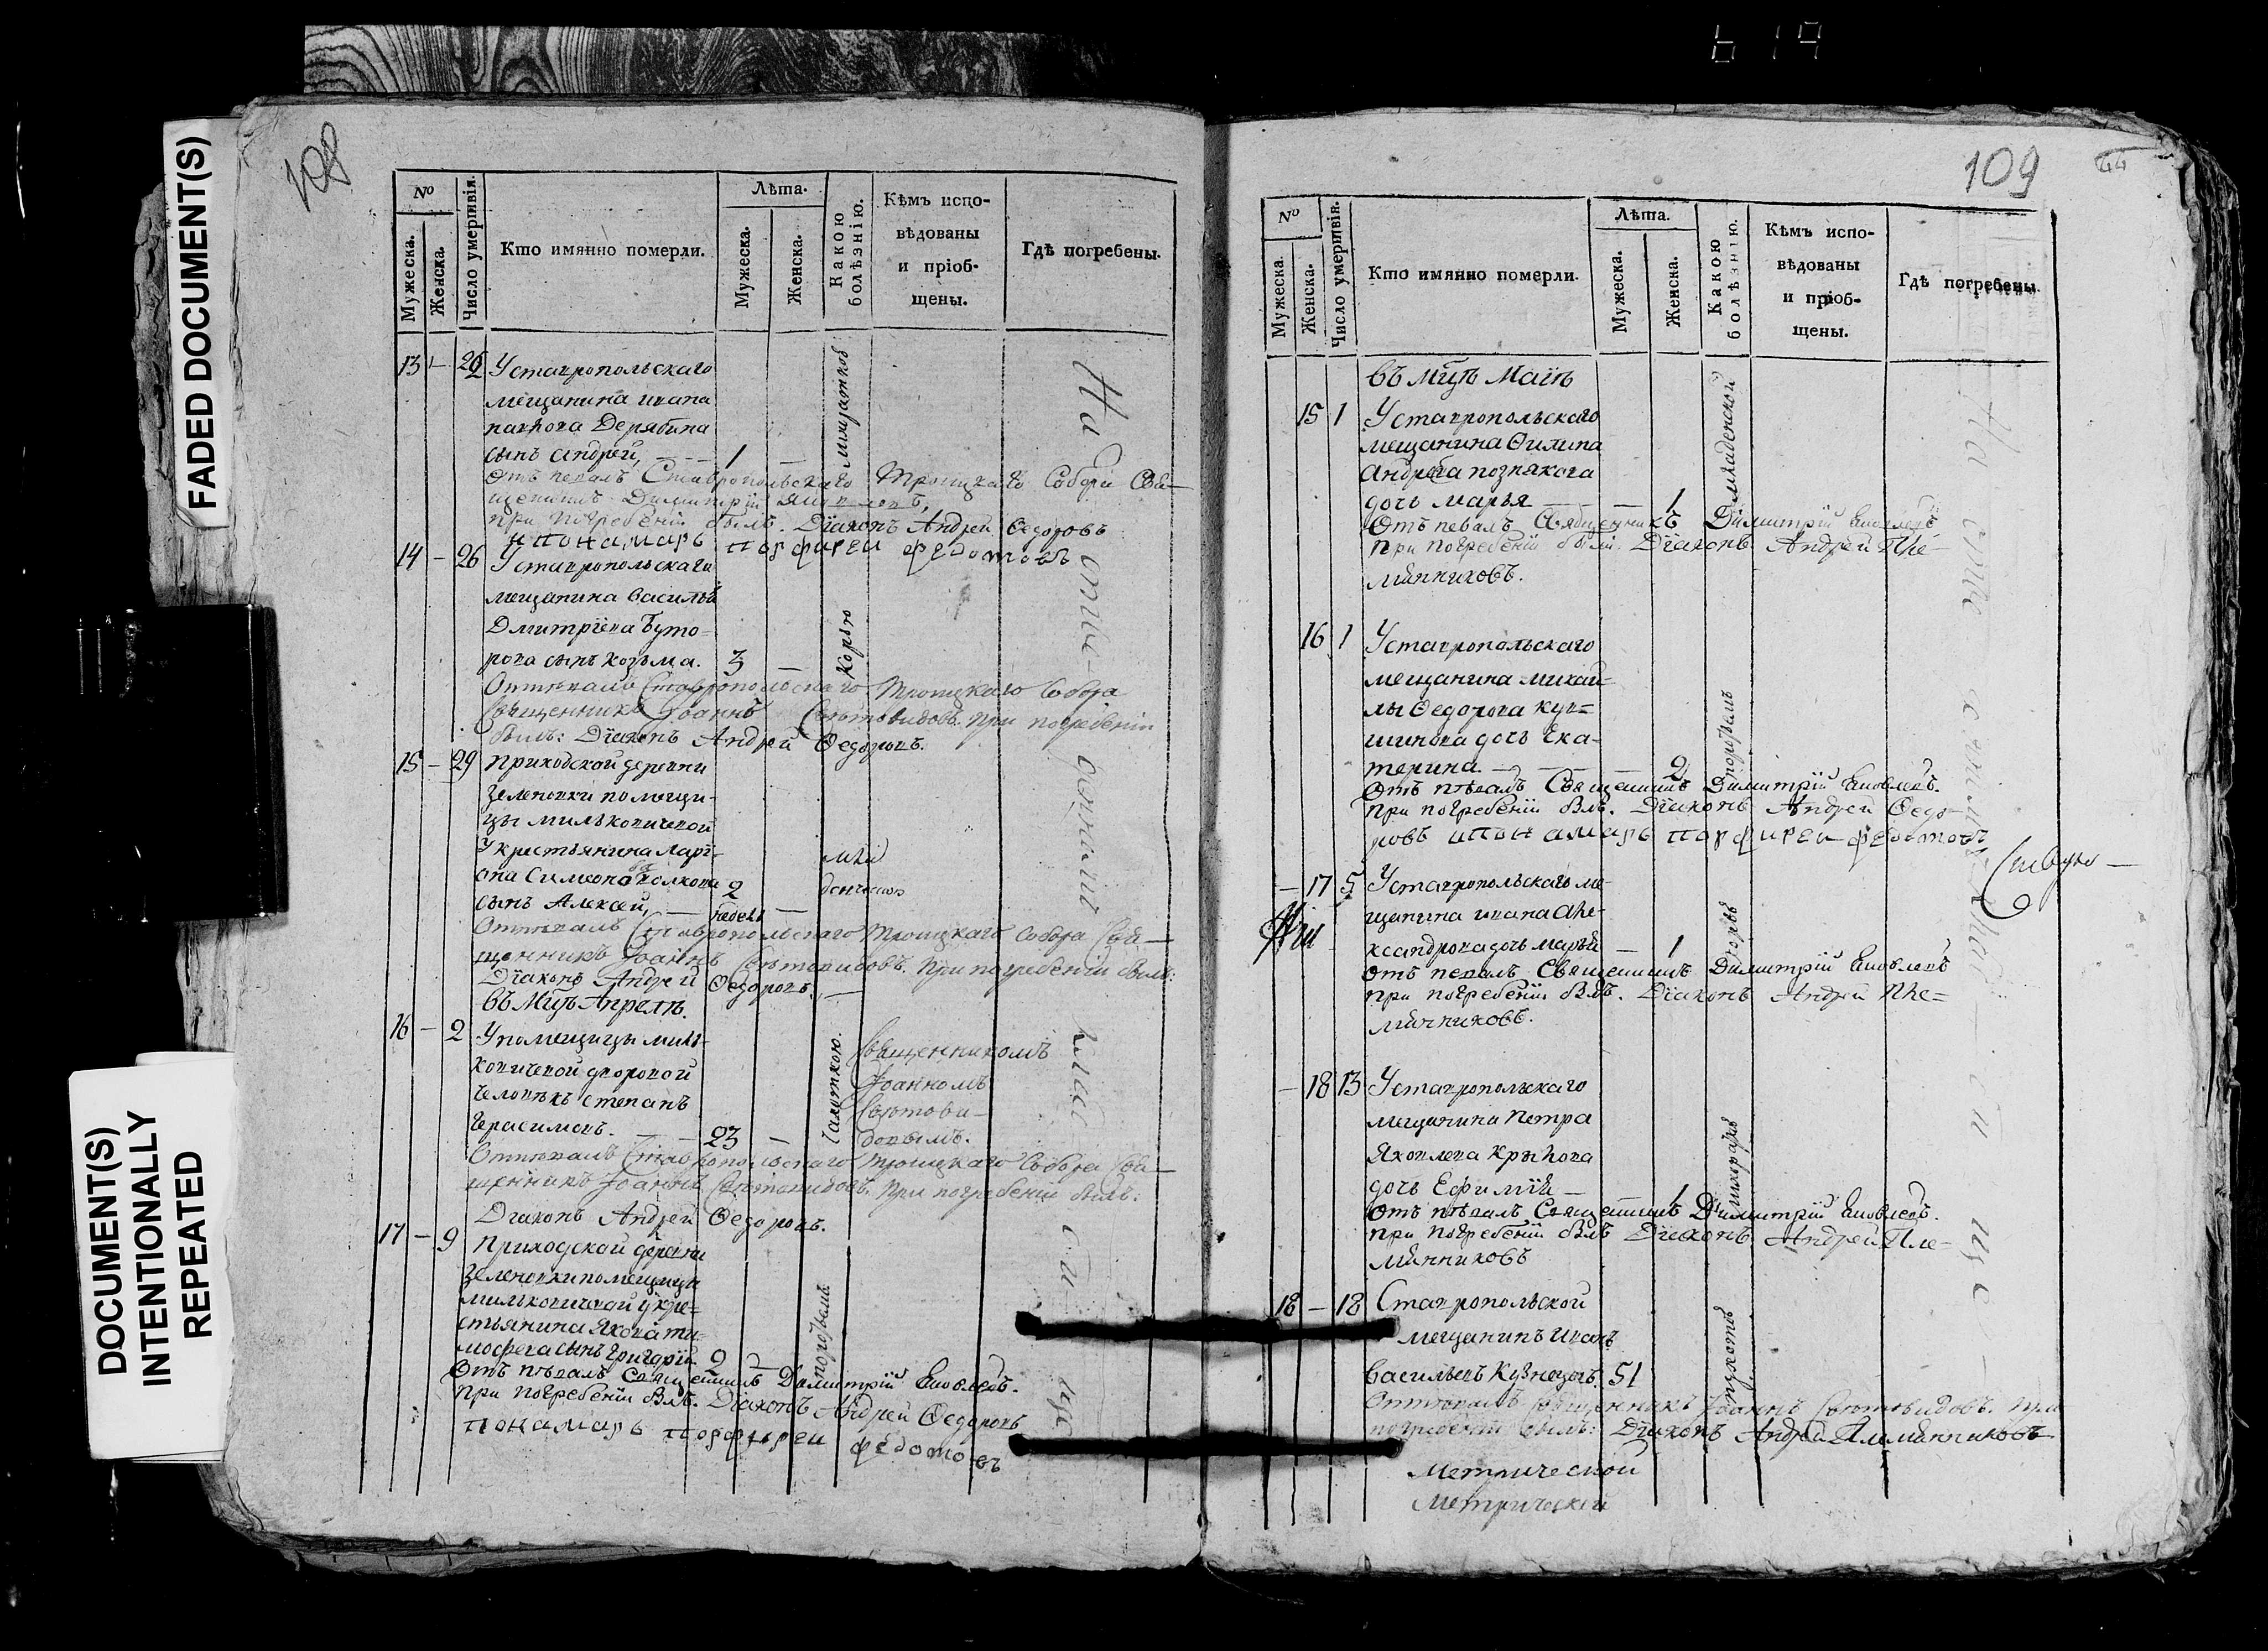 FADED DOCUMENT(S)
DOCUMENT(S)
INTENTIONALLY
REPEATED
108
№
Мужеска.
Женска.
Число умертвія.
Кто имянно померли.
Лѣта.
Мужеска.
Женска.
Какою
болѣзнію.
Кѣмъ испо-
вѣдованы
и пріоб-
щены.
Гдѣ погребены.
13 – 26 Уставропольскаго
мещанина ивана
павлова Дерябина
сынъ андрей, 1 –
Отъ певалъ Ставропольскаго Троицкаго Собора Свя-
щенникъ Димитрій Яковлевъ,
при погребеніи былъ. Діаконъ Андрей Ѳедоровъ
и понамарь порфиреи федотовъ
14 – 26 Уставропольскаго
мещанина василья
Дмитріева Буто-
рова сынъ козьма. 3 –
Корью
Отпѣвалъ Ставропольскаго Троицкаго Собора
Священникъ Іоаннъ Свѣтовидовъ. При погребеніи
былъ: Діаконъ Андрей Ѳедоровъ.
15 – 29 приходской деревни
зеленовки помещи-
цы мильковичевой
Укрестьянина лари-
она Симеонова волкова 2
сынъ Алексей, – недели –
мла
денческою
Отпѣвалъ Ставропольскаго Троицкаго Собора Свя-
щенникъ Іоаннъ Свѣтовидовъ. При погребеніи былъ:
Діаконъ Андрей Ѳедоровъ. –
въ Мцѣ Апрелѣ.
16 – 2 Упомещицы миль-
ковичевой дворовой
человѣкъ степанъ
герасимовъ. – 23 –
Чахоткою.
Священникомъ
Іоанномъ
Свѣтови-
довымъ.
Отпѣвалъ Ставропольскаго Троицкаго Собора Свя-
щенникъ Іоаннъ Свѣтовидовъ. При погребеніи былъ.
Діаконъ Андрей Ѳедоровъ.
17 – 9 Приходской деревни
зеленовки помещицы
мильковичевой укре-
стьянина Якова ти-
мофеева сынъ григорій 2 –
Отъ пѣвалъ священникъ Димитрій Яковлевъ.
При погребеніи былъ. Діаконъ Андрей Ѳедоровъ
понамарь порфиреи федотовъ
На
109
44
№
Мужеска.
Женска.
Число умертвія.
Кто имянно померли.
Лѣта.
Мужеска.
Женска.
Какою
болѣзнію.
Кѣмъ испо-
вѣдованы
и пріоб-
щены.
Гдѣ погребены.
въ мцѣ Маіѣ
15 1 Уставропольскаго
мещанина Филипа
Андреева познякова
дочь марья – 1
младенской
Отъ певалъ Священникъ Димитрій Яковлевъ
При погребеніи были. Діаконъ Андрей Пле-
мянниковъ.
16 1 Уставропольскаго
мещанина михай-
лы Ѳедорова кув-
шинова дочь Ека-
терина. – – 2
Отъ пѣвалъ Священникъ Димитрій Яковлевъ.
При погребеніи былъ. Діаконъ Андрей Ѳедо-
ровъ ипонамарь порфиреи федотовъ
– 17 5 Уставропольскаго ме-
щанина ивана але-
ксандрова дочь марья – 1
отъ певалъ Священникъ Димитрій Яковлевъ
При погребеніи былъ. Діаконъ Андрей Пле-
мянниковъ.
– 18 13 Уставропольскаго
мещанина Петра
Яковлева крылова
дочь Ефимія – 1
отъ пѣвалъ Священникъ Димитрій Яковлевъ.
При погребеніи былъ Діаконъ Андрей Пле-
мянниковъ
18 – 18 Ставропольской
мещанинъ Иванъ
васильевъ Кузнецовъ. 51
Отпѣвалъ священникъ Іоаннъ Свѣтовидовъ. При
погребеніи былъ: Діаконъ Андрей Племянниковъ
Метрической
Метрической